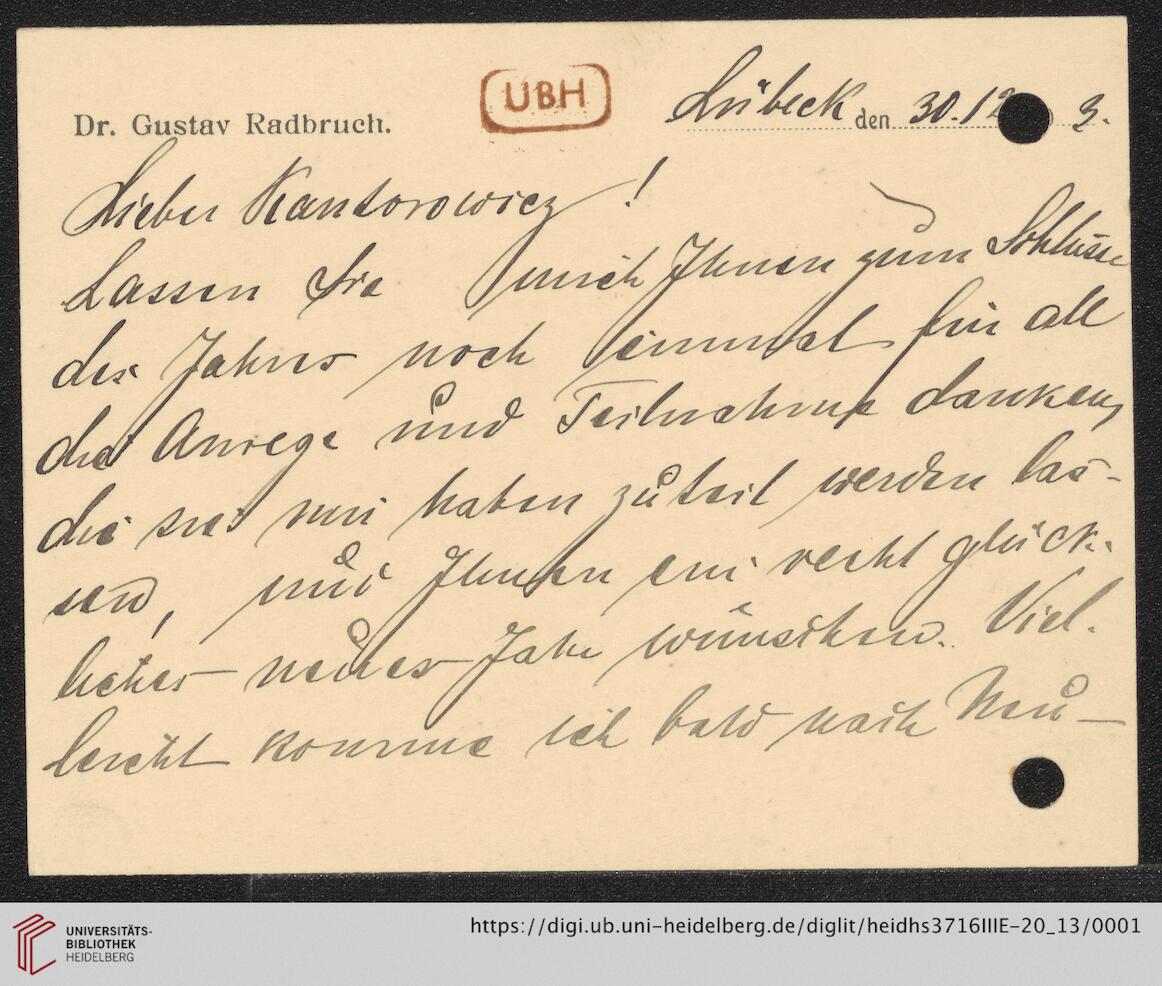 Dr. Gustav Radbruch.
UBH
Lübeck den 30.12 3.
Lieber Kantorowicz!
Lassen Sie mich Ihnen zum Schlusse
des Jahres noch einmal für all
die Anrege und Teilnahme danken,
die sie mir haben zuteil werden las-
sen, und Ihnen ein recht glück-
liches neues Jahr wünschen. Viel-
leicht komme ich bald nach Neu-
UNIVERSITÄTS-
BIBLIOTHEK
HEIDELBERG
https://digi.ub.uni-heidelberg.de/diglit/heidhs3716IIIE-20_13/0001